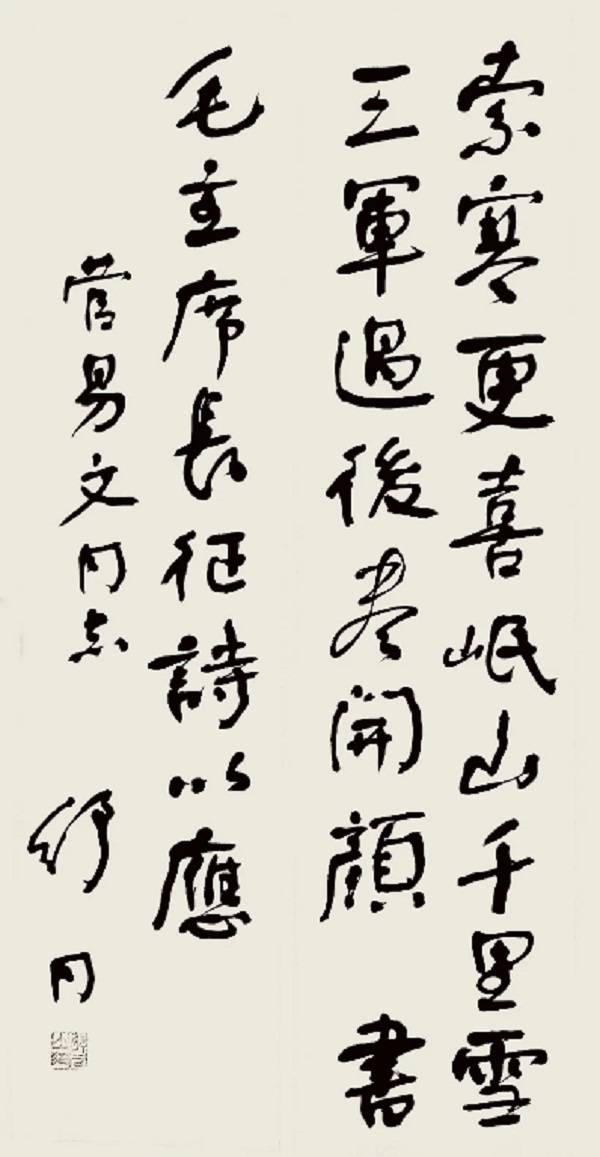 索寒更喜岷山千里雪
三軍過後盡開顏 書
毛主席長征詩以應
管易文同志
舒同